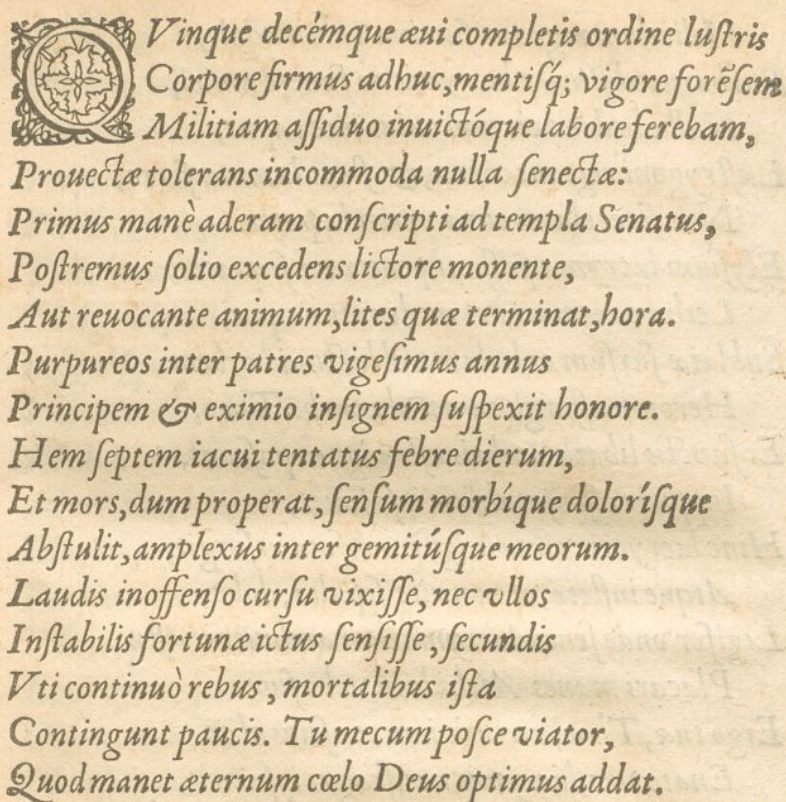 QVinque decémque æui completis ordine luſtris
Corpore firmus adhuc, mentiſq́; vigore forẽſem
Militiam aſſiduo inuictóque labore ferebam,
Prouectæ tolerans incommoda nulla ſenectæ:
Primus manè aderam conſcripti ad templa Senatus,
Poſtremus ſolio excedens lictore monente,
Aut reuocante animum, lites quæ terminat, hora.
Purpureos inter patres vigeſimus annus
Principem & eximio inſignem ſuſpexit honore.
Hem ſeptem iacui tentatus febre dierum,
Et mors, dum properat, ſenſum morbíque doloríſque
Abſtulit, amplexus inter gemitúſque meorum.
Laudis inoffenſo curſu vixiſſe, nec vllos
Inſtabilis fortunæ ictus ſenſiſſe, ſecundis
Vti continuò rebus, mortalibus iſta
Contingunt paucis. Tu mecum poſce viator,
Quod manet æternum cœlo Deus optimus addat.